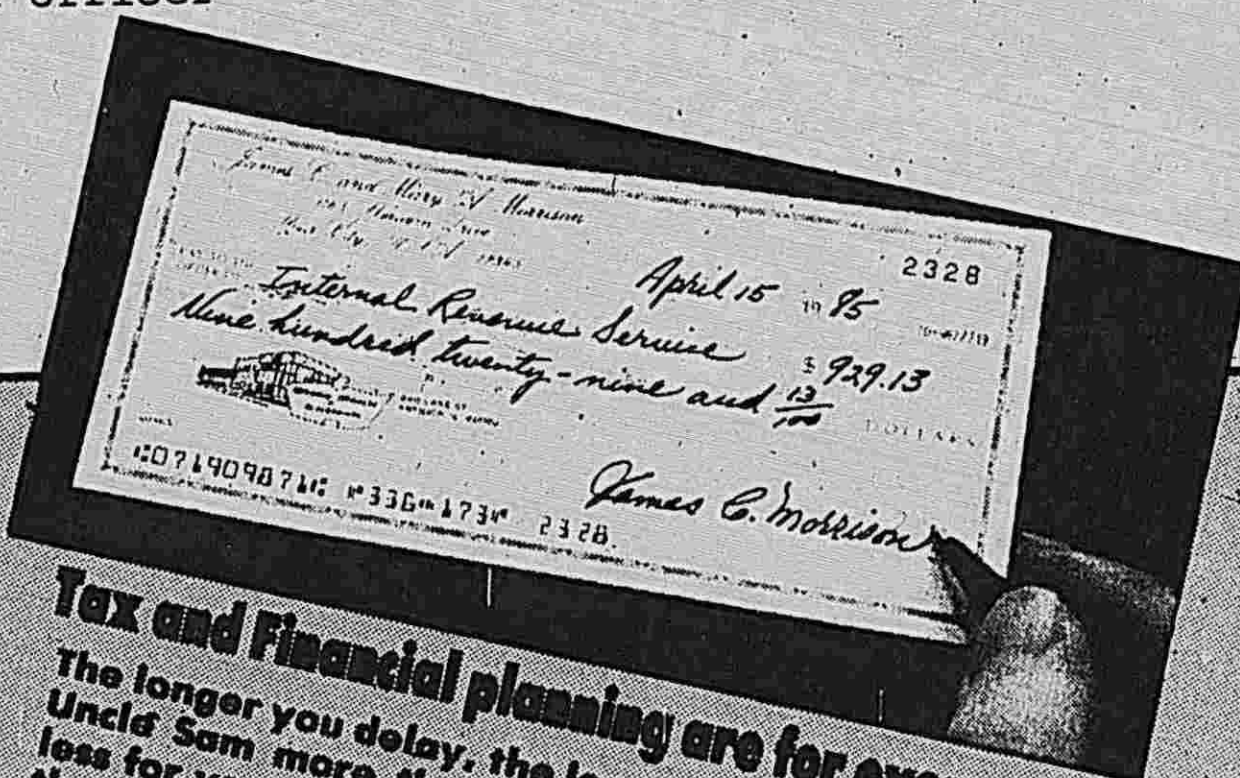 Officer
James C. and Mary A. Morrison
2328
April 15 19 85
Internal Revenue Service $ 929.13
Nine hundred twenty-nine and 13/100 DOLLARS
⑆071909871⑆ ⑈336⑈173⑈ 2328
James C. Morrison
Tax and Financial planning are for
The longer you delay, the
Uncle Sam more
less for